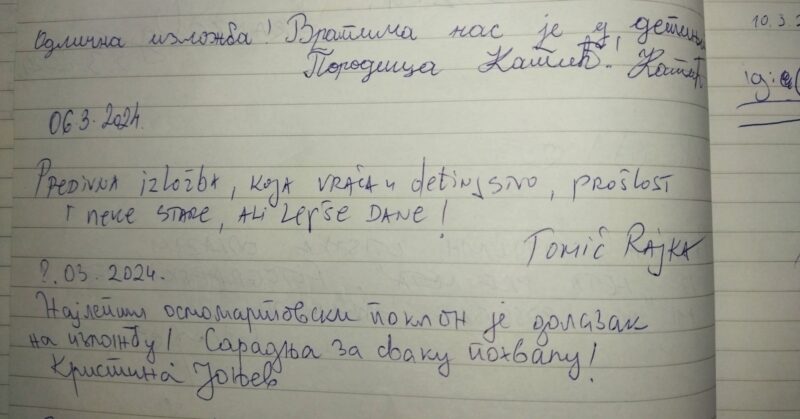 Одлична изложба! Вратила нас је у детињ
Породица Катић!
10.3.2
06.3.2024.
Predivna izložba, koja vraća u detinjstvo, prošlost
i neke stare, ali lepše dane!
Tomić Rajka
?.03.2024.
Најлепши осмомартовски поклон је долазак
на изложбу! Сарадња за сваку похвалу!
Кристина